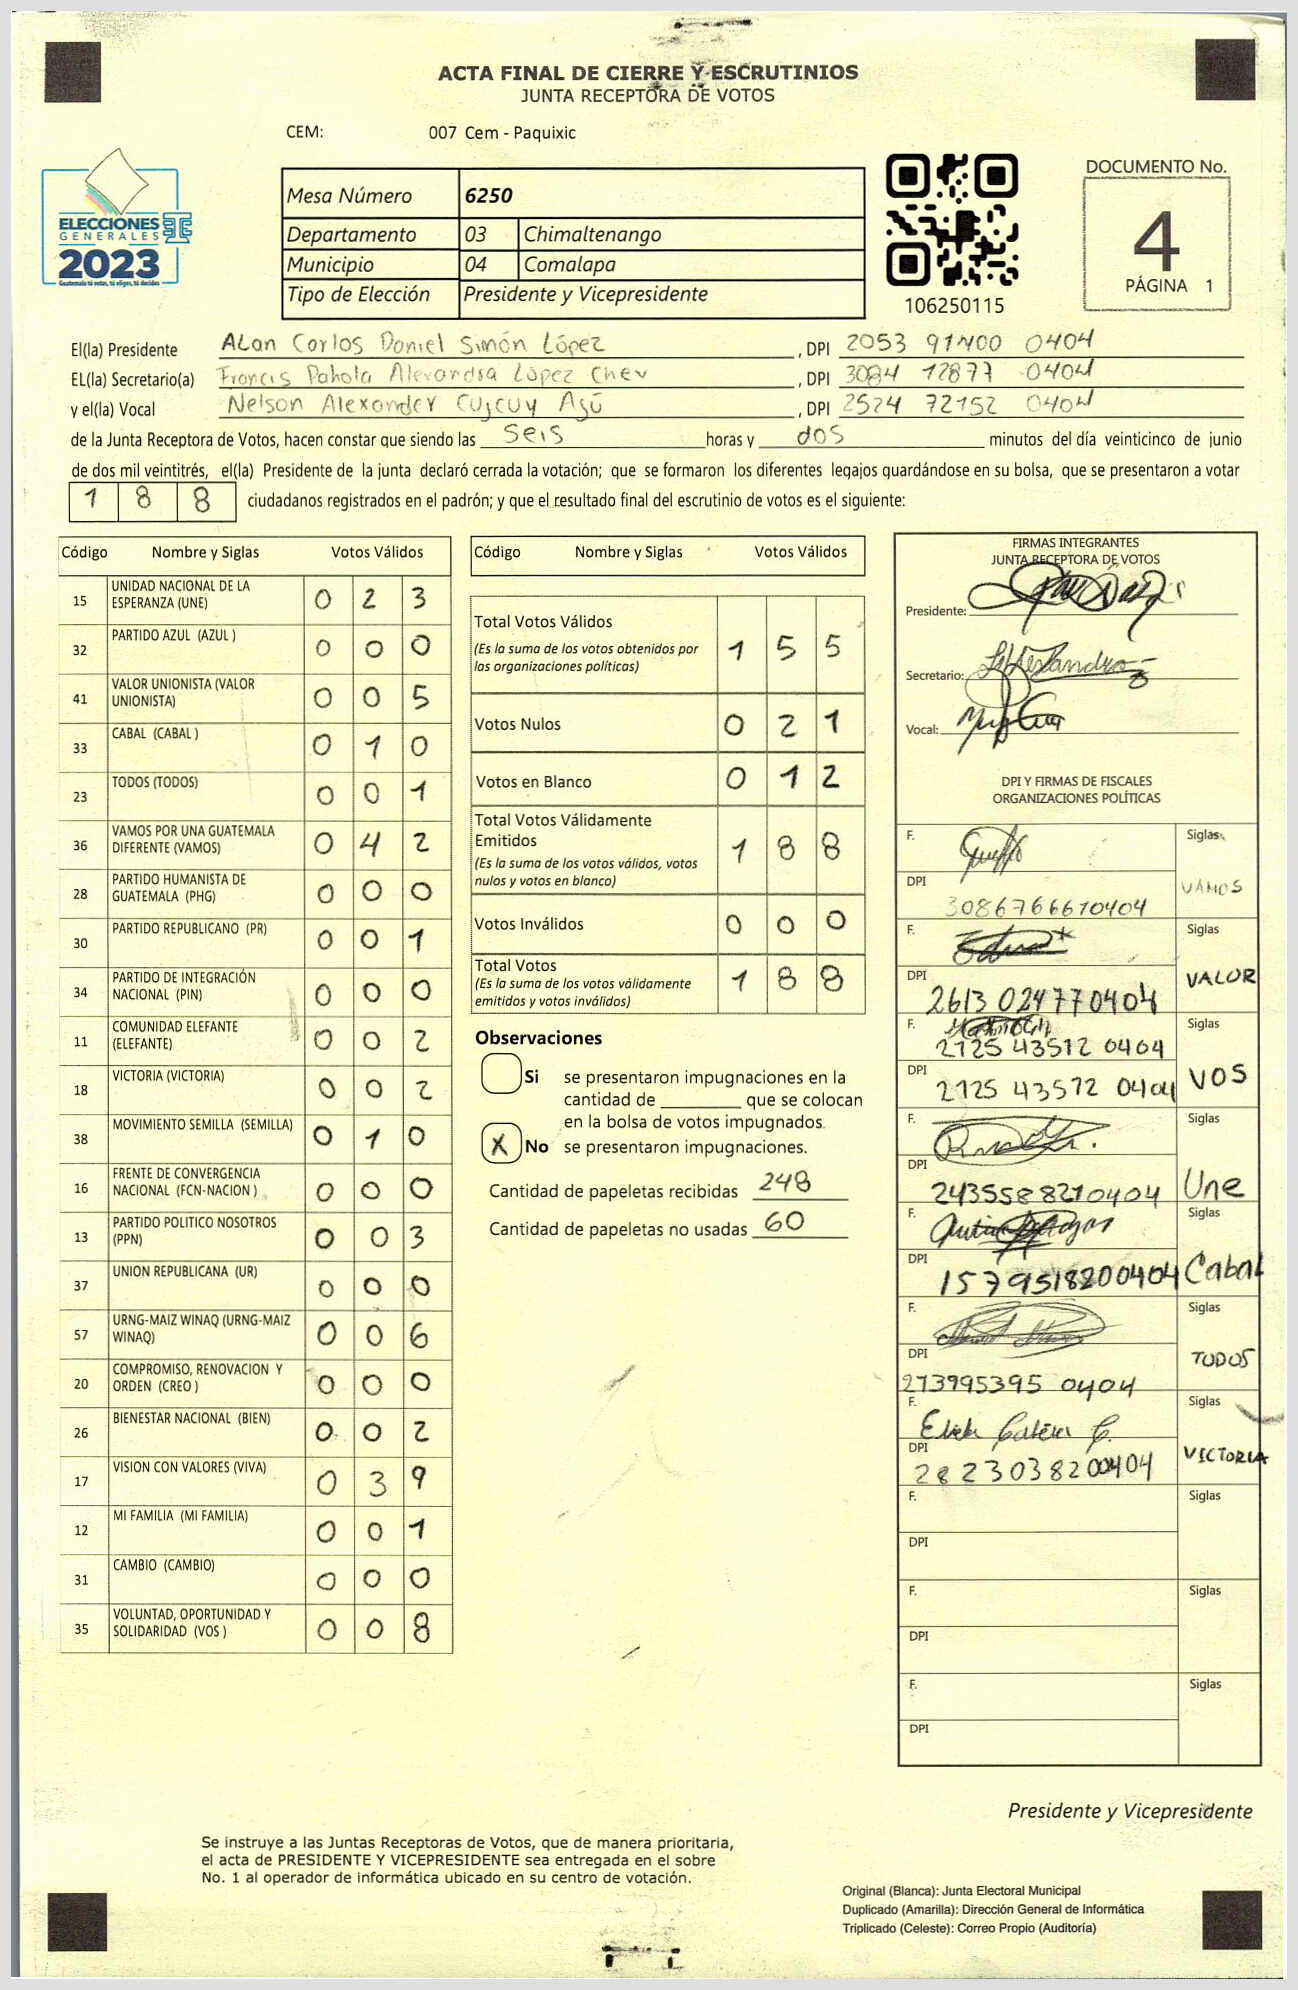 ACTA FINAL DE CIERRE Y ESCRUTINIOS
JUNTA RECEPTORA DE VOTOS
CEM: 007 Cem - Paquixic
ELECCIONES
GENERALES
2023
Guatemala tú votas, tú eliges, tú decides
Mesa Número 6250
Departamento 03 Chimaltenango
Municipio 04 Comalapa
Tipo de Elección Presidente y Vicepresidente
106250115
DOCUMENTO No.
4
PÁGINA 1
El(la) Presidente Alan Carlos Daniel Simón López, DPI 2053 91400 0404
EL(la) Secretario(a) Francis Pahola Alexandra López Chex, DPI 3084 12877 0404
y el(la) Vocal Nelson Alexander Cujcuy Ajú, DPI 2524 72152 0404
de la Junta Receptora de Votos, hacen constar que siendo las seis horas y dos minutos del día veinticinco de junio
de dos mil veintitrés, el(la) Presidente de la junta declaró cerrada la votación; que se formaron los diferentes legajos guardándose en su bolsa, que se presentaron a votar
1 8 8 ciudadanos registrados en el padrón; y que el resultado final del escrutinio de votos es el siguiente:
Código Nombre y Siglas Votos Válidos
15 UNIDAD NACIONAL DE LA ESPERANZA (UNE) 0 2 3
32 PARTIDO AZUL (AZUL ) 0 0 0
41 VALOR UNIONISTA (VALOR UNIONISTA) 0 0 5
33 CABAL (CABAL ) 0 1 0
23 TODOS (TODOS) 0 0 1
36 VAMOS POR UNA GUATEMALA DIFERENTE (VAMOS) 0 4 2
28 PARTIDO HUMANISTA DE GUATEMALA (PHG) 0 0 0
30 PARTIDO REPUBLICANO (PR) 0 0 1
34 PARTIDO DE INTEGRACIÓN NACIONAL (PIN) 0 0 0
11 COMUNIDAD ELEFANTE (ELEFANTE) 0 0 2
18 VICTORIA (VICTORIA) 0 0 2
38 MOVIMIENTO SEMILLA (SEMILLA) 0 1 0
16 FRENTE DE CONVERGENCIA NACIONAL (FCN-NACION ) 0 0 0
13 PARTIDO POLITICO NOSOTROS (PPN) 0 0 3
37 UNION REPUBLICANA (UR) 0 0 0
57 URNG-MAIZ WINAQ (URNG-MAIZ WINAQ) 0 0 6
20 COMPROMISO, RENOVACION Y ORDEN (CREO ) 0 0 0
26 BIENESTAR NACIONAL (BIEN) 0 0 2
17 VISION CON VALORES (VIVA) 0 3 9
12 MI FAMILIA (MI FAMILIA) 0 0 1
31 CAMBIO (CAMBIO) 0 0 0
35 VOLUNTAD, OPORTUNIDAD Y SOLIDARIDAD (VOS ) 0 0 8
Código Nombre y Siglas Votos Válidos
Total Votos Válidos 1 5 5
(Es la suma de los votos obtenidos por
las organizaciones políticas)
Votos Nulos 0 2 1
Votos en Blanco 0 1 2
Total Votos Válidamente
Emitidos 1 8 8
(Es la suma de los votos válidos, votos
nulos y votos en blanco)
Votos Inválidos 0 0 0
Total Votos 1 8 8
(Es la suma de los votos válidamente
emitidos y votos inválidos)
Observaciones
Si se presentaron impugnaciones en la
cantidad de ________ que se colocan
en la bolsa de votos impugnados.
X No se presentaron impugnaciones.
Cantidad de papeletas recibidas 248
Cantidad de papeletas no usadas 60
FIRMAS INTEGRANTES
JUNTA RECEPTORA DE VOTOS
Presidente:
Secretario:
Vocal:
DPI Y FIRMAS DE FISCALES
ORGANIZACIONES POLÍTICAS
F. Siglas
DPI VAMOS
3086766610404
F. Siglas
DPI VALOR
2613 024770404
F. Siglas
2125 43512 0404
DPI VOS
2125 43572 0404
F. Siglas
DPI
2435588210404 Une
F. Siglas
DPI
1579518200404 Cabal
F. Siglas
DPI TODOS
273995395 0404
F. Siglas
DPI VICTORIA
2823038200404
F. Siglas
DPI
F. Siglas
DPI
F. Siglas
DPI
Presidente y Vicepresidente
Se instruye a las Juntas Receptoras de Votos, que de manera prioritaria,
el acta de PRESIDENTE Y VICEPRESIDENTE sea entregada en el sobre
No. 1 al operador de informática ubicado en su centro de votación.
Original (Blanca): Junta Electoral Municipal
Duplicado (Amarilla): Dirección General de Informática
Triplicado (Celeste): Correo Propio (Auditoría)